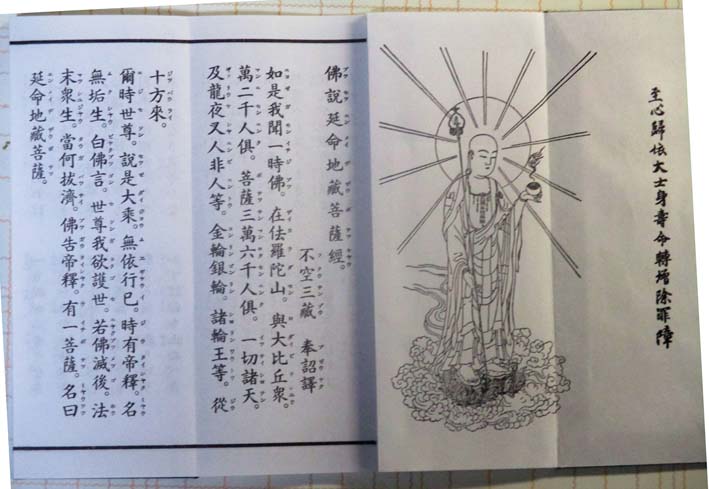 至心歸依大士身壽命轉增除罪障
佛說延命地藏菩薩經。
不空三藏 奉詔譯
如是我聞一時佛。在佉羅陀山。與大比丘衆。
萬二千人俱。菩薩三萬六千人俱。一切諸天。
及龍夜叉人非人等。金輪銀輪。諸輪王等。從
十方來。
爾時世尊。說是大乘。無依行已。時有帝釋。名
無垢生。白佛言。世尊我欲護世。若佛滅後。法
末衆生。當何拔濟。佛告帝釋。有一菩薩。名曰
延命地藏菩薩。